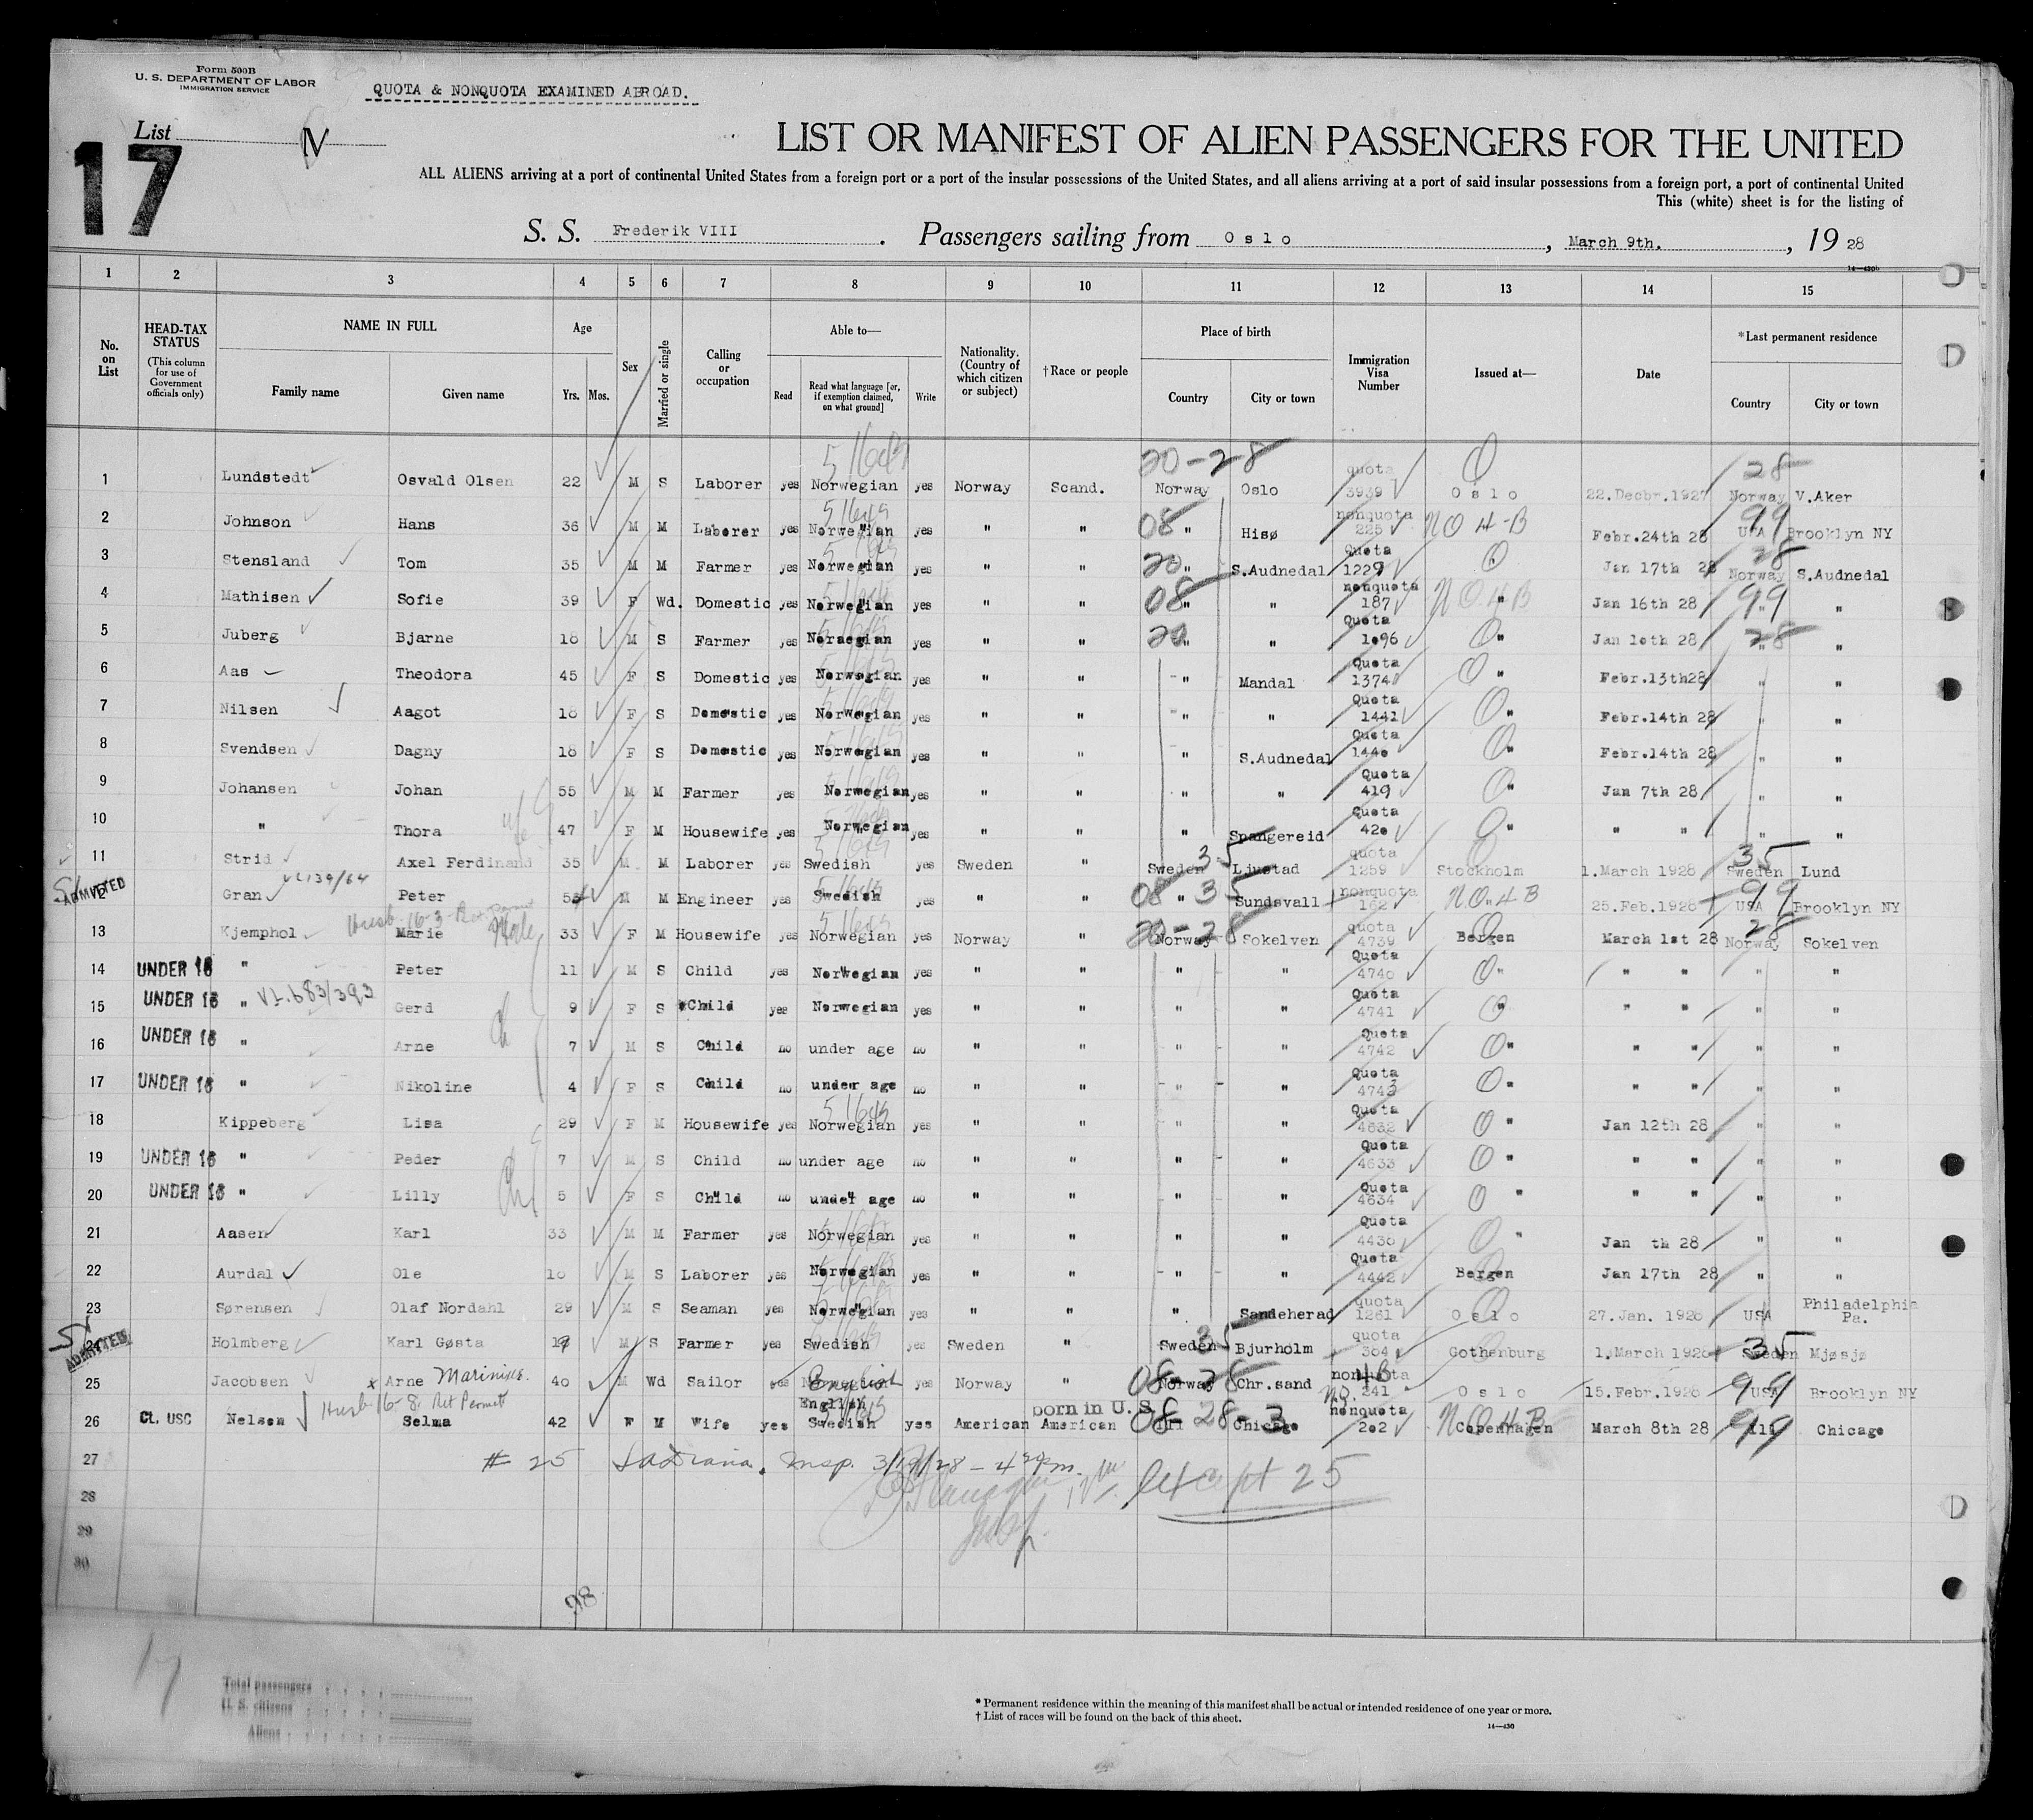 Form 500B
U. S. DEPARTMENT OF LABOR
IMMIGRATION SERVICE
QUOTA & NONQUOTA EXAMINED ABROAD.
List IV
17
LIST OR MANIFEST OF ALIEN PASSENGERS FOR THE UNITED
ALL ALIENS arriving at a port of continental United States from a foreign port or a port of the insular possessions of the United States, and all aliens arriving at a port of said insular possessions from a foreign port, a port of continental United
This (white) sheet is for the listing of
S. S. Frederik VIII. Passengers sailing from Oslo, March 9th., 19 28
1 2 3 4 5 6 7 8 9 10 11 12 13 14 15
No. on List HEAD-TAX STATUS (This column for use of Government officials only) NAME IN FULL Family name Given name Age Yrs. Mos. Sex Married or single Calling or occupation Able to— Read Read what language [or, if exemption claimed, on what ground] Write Nationality. (Country of which citizen or subject) †Race or people Place of birth Country City or town Immigration Visa Number Issued at— Date *Last permanent residence Country City or town
20-28 28
1 Lundstedt Osvald Olsen 22 M S Laborer yes Norwegian yes Norway Scand. Norway Oslo quota 3939 Oslo 22.Decbr.1927 Norway V.Aker
2 Johnson Hans 36 M M Laborer yes Norwegian yes " " 08 " Hisø nonquota 225 NO 4-B Febr.24th 28 99 USA Brooklyn NY
3 Stensland Tom 35 M M Farmer yes Norwegian yes " " 20 " S.Audnedal Quota 1229 0 Jan 17th 28 28 Norway S.Audnedal
4 Mathisen Sofie 39 F Wd. Domestic yes Norwegian yes " " 08 " " nonquota 187 NO 4B " Jan 16th 28 99 " "
5 Juberg Bjarne 18 M S Farmer yes Noraegian yes " " 20 " " Quota 1096 0 " Jan 10th 28 28 " "
6 Aas Theodora 45 F S Domestic yes Norwegian yes " " " Mandal Quota 1374 0 " Febr.13th28 " "
7 Nilsen Aagot 18 F S Domestic yes Norwegian yes " " " " Quota 1441 0 " Febr.14th 28 " "
8 Svendsen Dagny 18 F S Domestic yes Norwegian yes " " " S.Audnedal Quota 1440 0 " Febr.14th 28 " "
9 Johansen Johan 55 M M Farmer yes Norwegian yes " " " " Quota 419 0 " Jan 7th 28 " "
10 " Thora 47 F M Housewife yes Norwegian yes " " " Spangereid Quota 420 0 " " " " "
11 Strid Axel Ferdinand 35 M M Laborer yes Swedish yes Sweden " Sweden 35 Ljustad quota 1259 Stockholm 1.March 1928 35 Sweden Lund
ADMITTED
12 Gran Peter M M Engineer yes Swedish yes " " 08 " 35 Sundsvall nonquota 162 NO. 4B 25.Feb.1928 99 USA Brooklyn NY
13 Kjemphol Marie 33 F M Housewife yes Norwegian yes Norway " 20-28 Norway Sokelven quota 4739 Bergen March 1st 28 28 Norway Sokelven
14 UNDER 16 " Peter 11 M S Child yes Norwegian yes " " " " Quota 4740 0 " " " " "
15 UNDER 16 " Gerd 9 F S Child yes Norwegian yes " " " " Quota 4741 0 " " " " "
16 UNDER 16 " Arne 7 M S Child no under age no " " " " Quota 4742 0 " " " " "
17 UNDER 16 " Nikoline 4 F S Child no under age no " " " " Quota 4743 0 " " " " "
18 Kippeberg Lisa 29 F M Housewife yes Norwegian yes " " " " Quota 4632 0 " Jan 12th 28 " "
19 UNDER 16 " Peder 7 M S Child no under age no " " " " Quota 4633 0 " " " " "
20 UNDER 16 " Lilly 5 F S Child no under age no " " " " Quota 4634 0 " " " " "
21 Aasen Karl 33 M M Farmer yes Norwegian yes " " " " Quota 4436 0 " Jan th 28 " "
22 Aurdal Ole 18 M S Laborer yes Norwegian yes " " " " Quota 4442 Bergen Jan 17th 28 " "
23 Sørensen Olaf Nordahl 29 M S Seaman yes Norwegian yes " " " Sandeherad quota 1261 Oslo 27.Jan. 1928 USA Philadelphia Pa.
ADMITTED
24 Holmberg Karl Gøsta M S Farmer yes Swedish yes Sweden " Sweden 35 Bjurholm quota 364 Gothenburg 1.March 1928 35 Sweden Mjøsjø
25 Jacobsen x Arne 40 M Wd Sailor yes English yes Norway " 08-28 Norway Chr.sand nonquota 4B NO. 241 Oslo 15.Febr.1928 99 USA Brooklyn NY
Husb 16-8 Ret Permit
26 Ct. USC Nelsen Selma 42 F M Wife yes English Swedish yes American born in U. S. American 08-28-3 Ill Chicago nonquota 202 NO 4B Copenhagen March 8th 28 99 Ill Chicago
27 # 25 Insp. 3/19/28 - 4 pm.
28 except 25
29
30
98
17
Total passengers
U. S. citizens
Aliens
* Permanent residence within the meaning of this manifest shall be actual or intended residence of one year or more.
† List of races will be found on the back of this sheet.
14—430